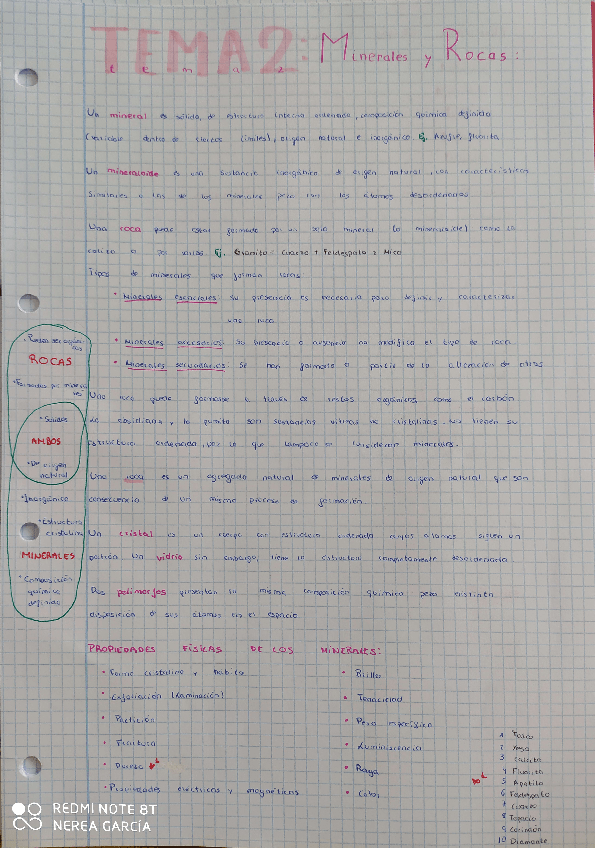 TEMA 2: Minerales y Rocas:
t e m a 2
Un mineral es sólido, de estructura interna ordenada, composición química definida
(variable dentro de ciertos límites), origen natural e inorgánico. Ej. Azufre, fluorita
Un mineraloide es una sustancia inorgánica de origen natural, con características
similares a las de los minerales pero con los átomos desordenados
Una roca puede estar formada por un solo mineral (o mineraloide) como la
caliza o por varios. Ej. Granito = Cuarzo + Feldespato + Mica
Tipos de minerales que forman rocas
· Minerales esenciales: su presencia es necesaria para definir y caracterizar
una roca
· Minerales accesorios: Su presencia o ausencia no modifica el tipo de roca
· Minerales secundarios: Se han formado a partir de la alteración de otros
Una roca puede formarse a través de restos orgánicos como el carbón
la obsidiana, y la pumita son sustancias vítreas no cristalinas. No tienen su
estructura ordenada, por lo que tampoco se consideran minerales.
Una roca es un agregado natural de minerales de origen natural que son
consecuencia de un mismo proceso de formación.
Un cristal es un cuerpo con estructura ordenada cuyos átomos siguen un
patrón. Un vidrio sin embargo, tiene la estructura completamente desordenada
Dos polimorfos presentan la misma composición química pero distinta
disposición de sus átomos en el espacio
ROCAS
· Formados por minerales
· Sólidos
AMBOS
· De origen
natural
· Inorgánico
· Estructura
cristalina
MINERALES
· Composición
química
definida
PROPIEDADES FÍSICAS DE LOS MINERALES:
· Forma cristalina y hábito
· Exfoliación (laminación)
· Partición
· Fractura
· Dureza
· Propiedades eléctricas y magnéticas
· Brillo
· Tenacidad
· Peso específico
· Luminiscencia
· Raya
· Color
1 Talco
2 Yeso
3 Calcita
4 Fluorita
5 Apatito
6 Feldespato
7 Cuarzo
8 Topacio
9 Corindón
10 Diamante
REDMI NOTE 8T
NEREA GARCÍA